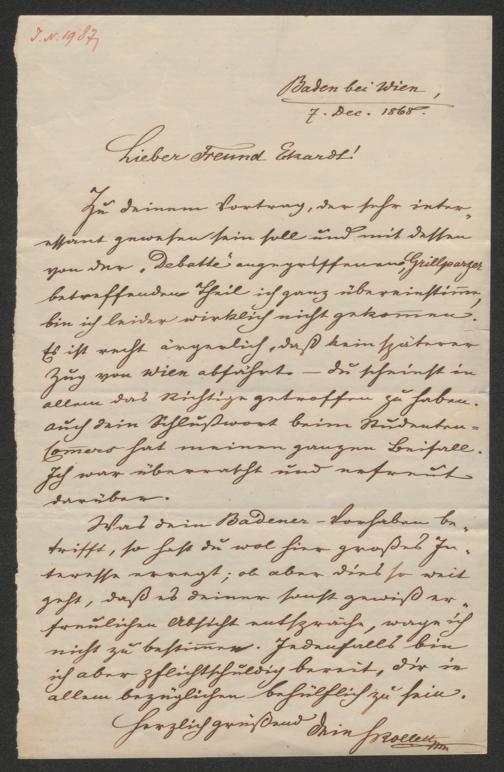 I. N. 1987
Baden bei Wien,
7. Dec. 1868.
Lieber Freund Ekardt!
Zu deinem Vortrag, der sehr inter-
essant gewesen sein soll und mit dessen
von der „Debatte" angegriffenen, Grillparzer
betreffenden Theil ich ganz übereinstimme,
bin ich leider wirklich nicht gekommen.
Es ist recht ärgerlich, daß kein späterer
Zug von Wien abfährt. – du scheinst in
allem das Richtige getroffen zu haben.
Auch dein Schlußwort beim Studenten-
Comers hat meinen ganzen Beifall.
Ich war überrascht und erfreut
darüber.
Was dein Badener-Vorhaben be-
trifft, so hast du wol hier großes In-
teresse erregt; ob aber dies so weit
geht, daß es deiner sonst gewiß er-
freulichen Absicht entspräche, wage ich
nicht zu bestimmen. Jedenfalls bin
ich aber pflichtschuldig bereit, dir in
allem bezüglichen behülflich zu sein.
Herzlich grüßend dein HRollett